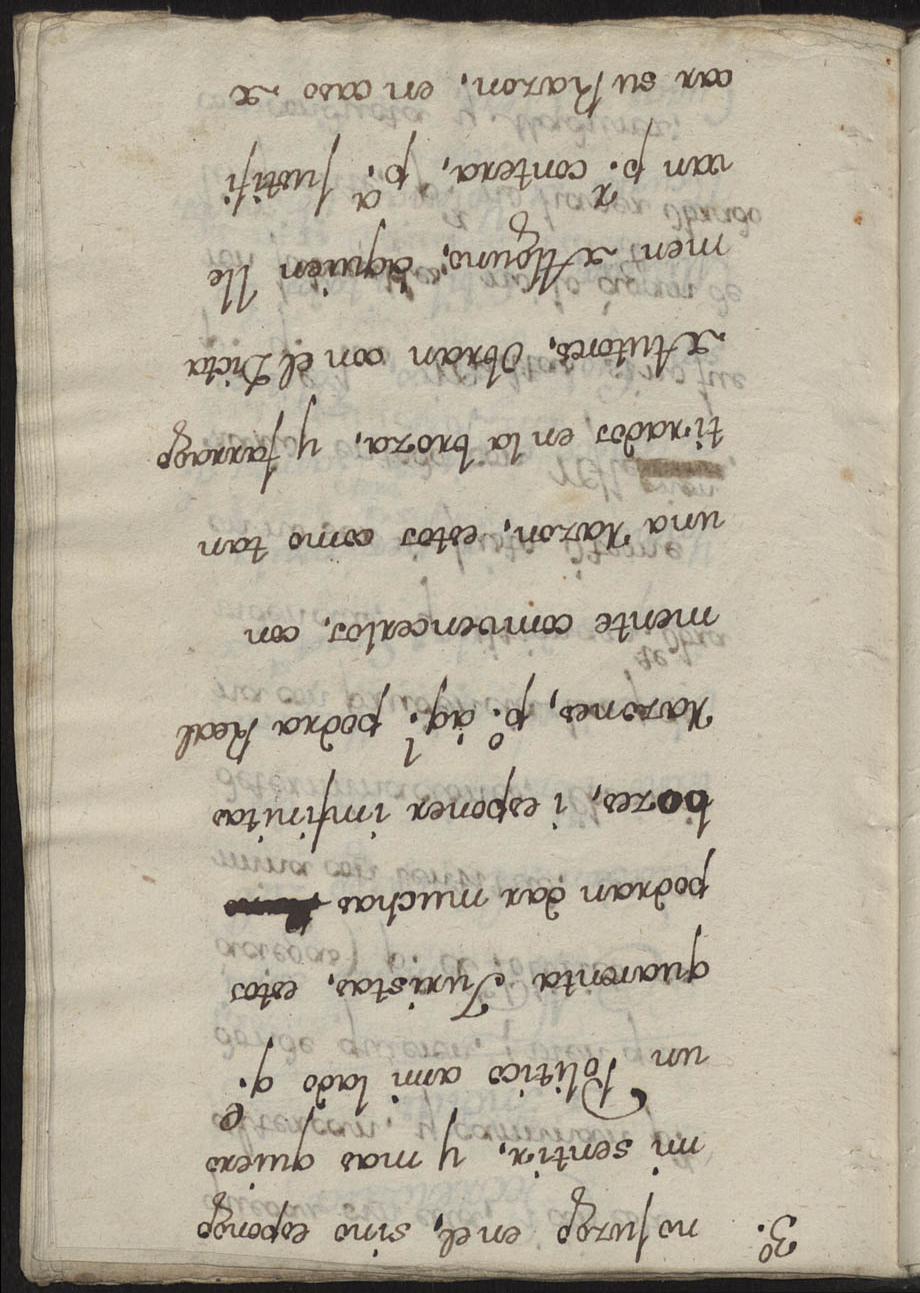 3.º no juzgo en el, sino espongo
mi sentir, y mas quiero
un Politico ami lado q.e
quarenta Juristas, estos
podran dar muchas
bozes, i esponer imfinitas
Razones, p.o aq.l podra Real
mente comvencerlos, con
una Razon, estos como tan
tirados en la broza, y farrago
de Autores, Obran con el Dicta
men de Alguno, aquien lle
van p.r contera, p.a Justifi
car su Razon, en caso de